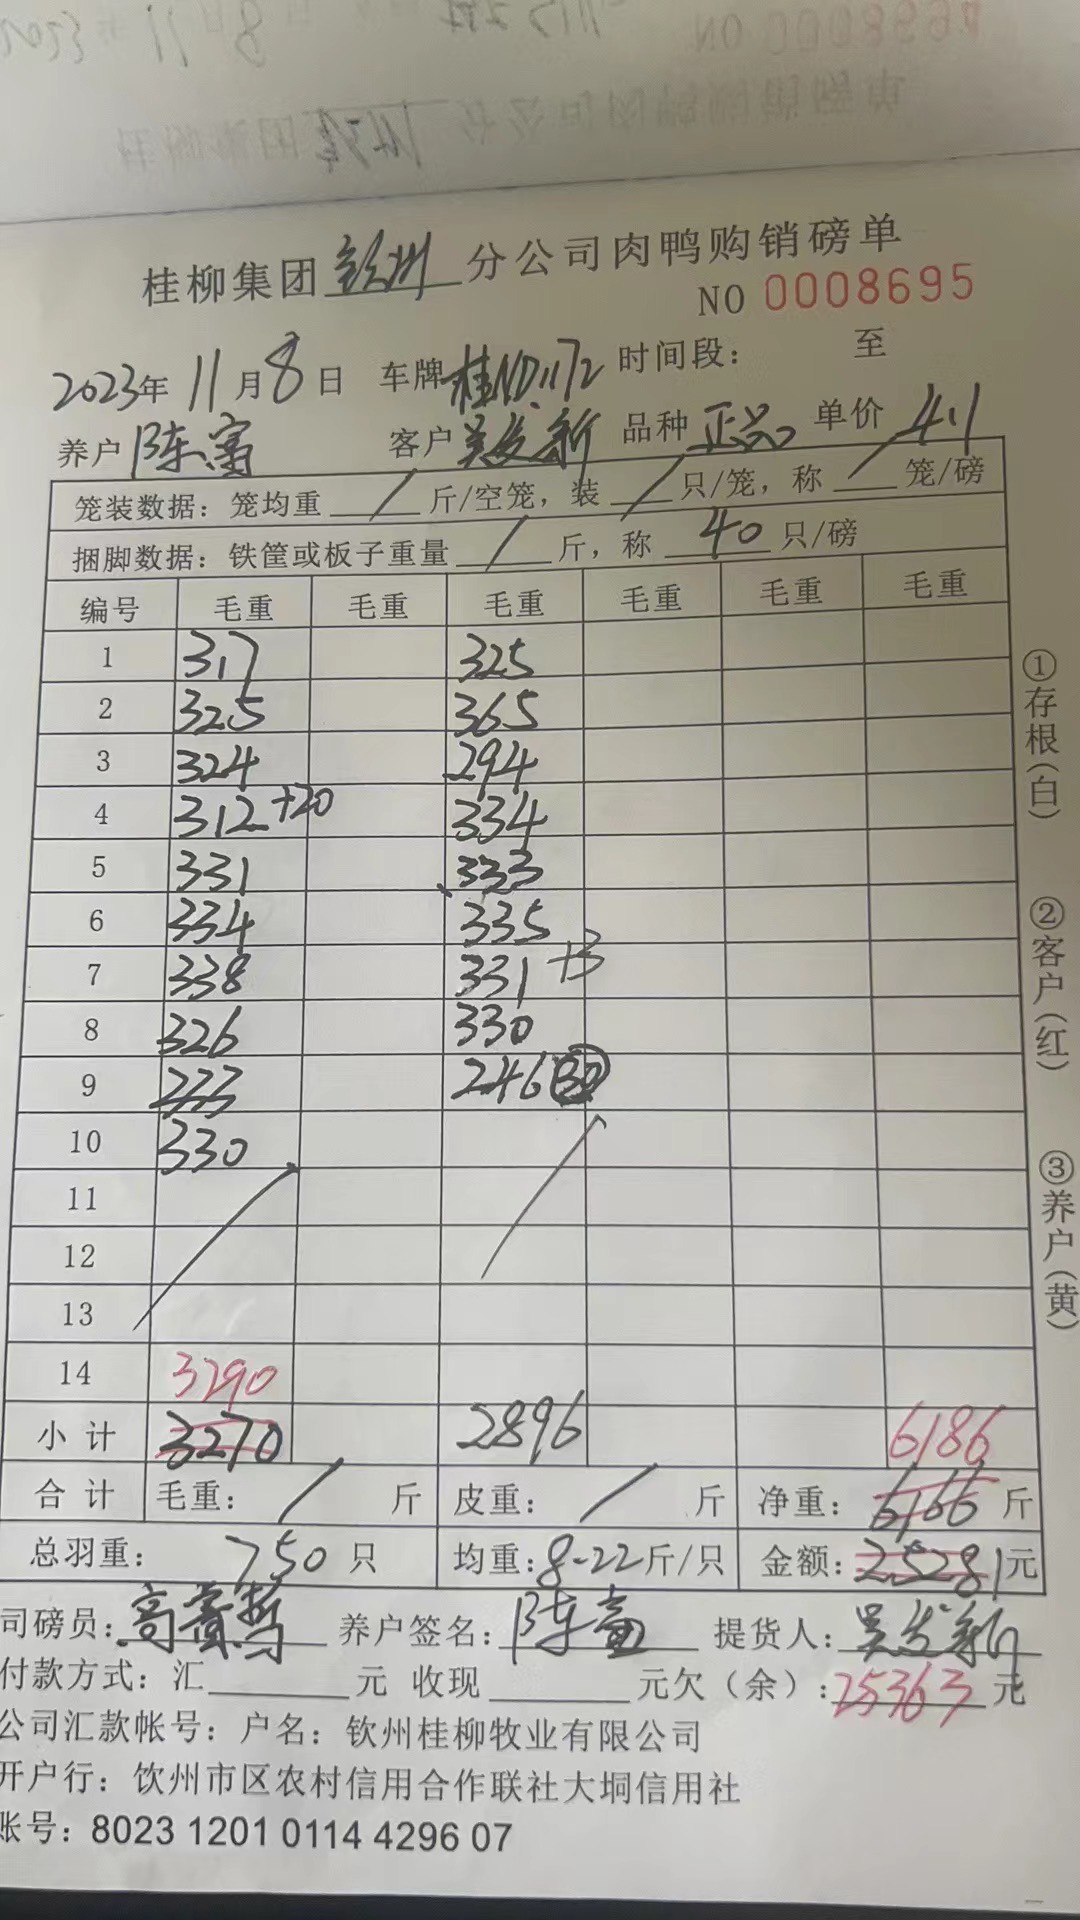 桂柳集团 钦州 分公司肉鸭购销磅单
NO 0008695
2023年 11月8日 车牌 桂ND1172 时间段: 至
养户 陈富 客户 吴发新 品种 正品 单价 4.1
笼装数据: 笼均重 / 斤/空笼, 装 / 只/笼, 称 / 笼/磅
捆脚数据: 铁筐或板子重量 / 斤, 称 40 只/磅
编号 毛重 毛重 毛重 毛重 毛重 毛重
1 317 325
2 325 365
3 324 294
4 312+20 334
5 331 333
6 334 335
7 338 331 +3
8 326 330
9 333 246 (30)
10 330
11
12
13
14 3290
小计 3270 2896 6186
合计 毛重: / 斤 皮重: / 斤 净重: 6166 斤
总羽重: 750 只 均重: 8-22斤/只 金额: 25281元
司磅员: 养户签名: 陈富 提货人: 吴发新
付款方式: 汇 元 收现 元欠(余): 25363 元
公司汇款帐号: 户名: 钦州桂柳牧业有限公司
开户行: 钦州市区农村信用合作联社大垌信用社
账号: 8023 1201 0114 4296 07
①存根(白)
②客户(红)
③养户(黄)